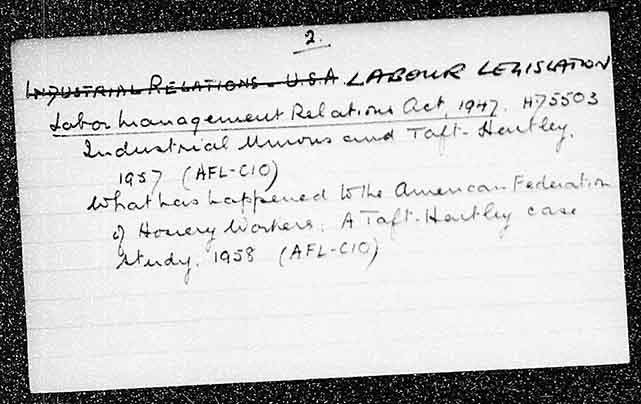 2.
INDUSTRIAL RELATIONS - U.S.A. LABOUR LEGISLATION
Labor Management Relations Act, 1947. H75503
Industrial Unions and Taft-Hartley.
1957 (AFL-CIO)
What has happened to the American Federation
of Hosiery Workers. A Taft-Hartley case
study. 1958 (AFL-CIO)